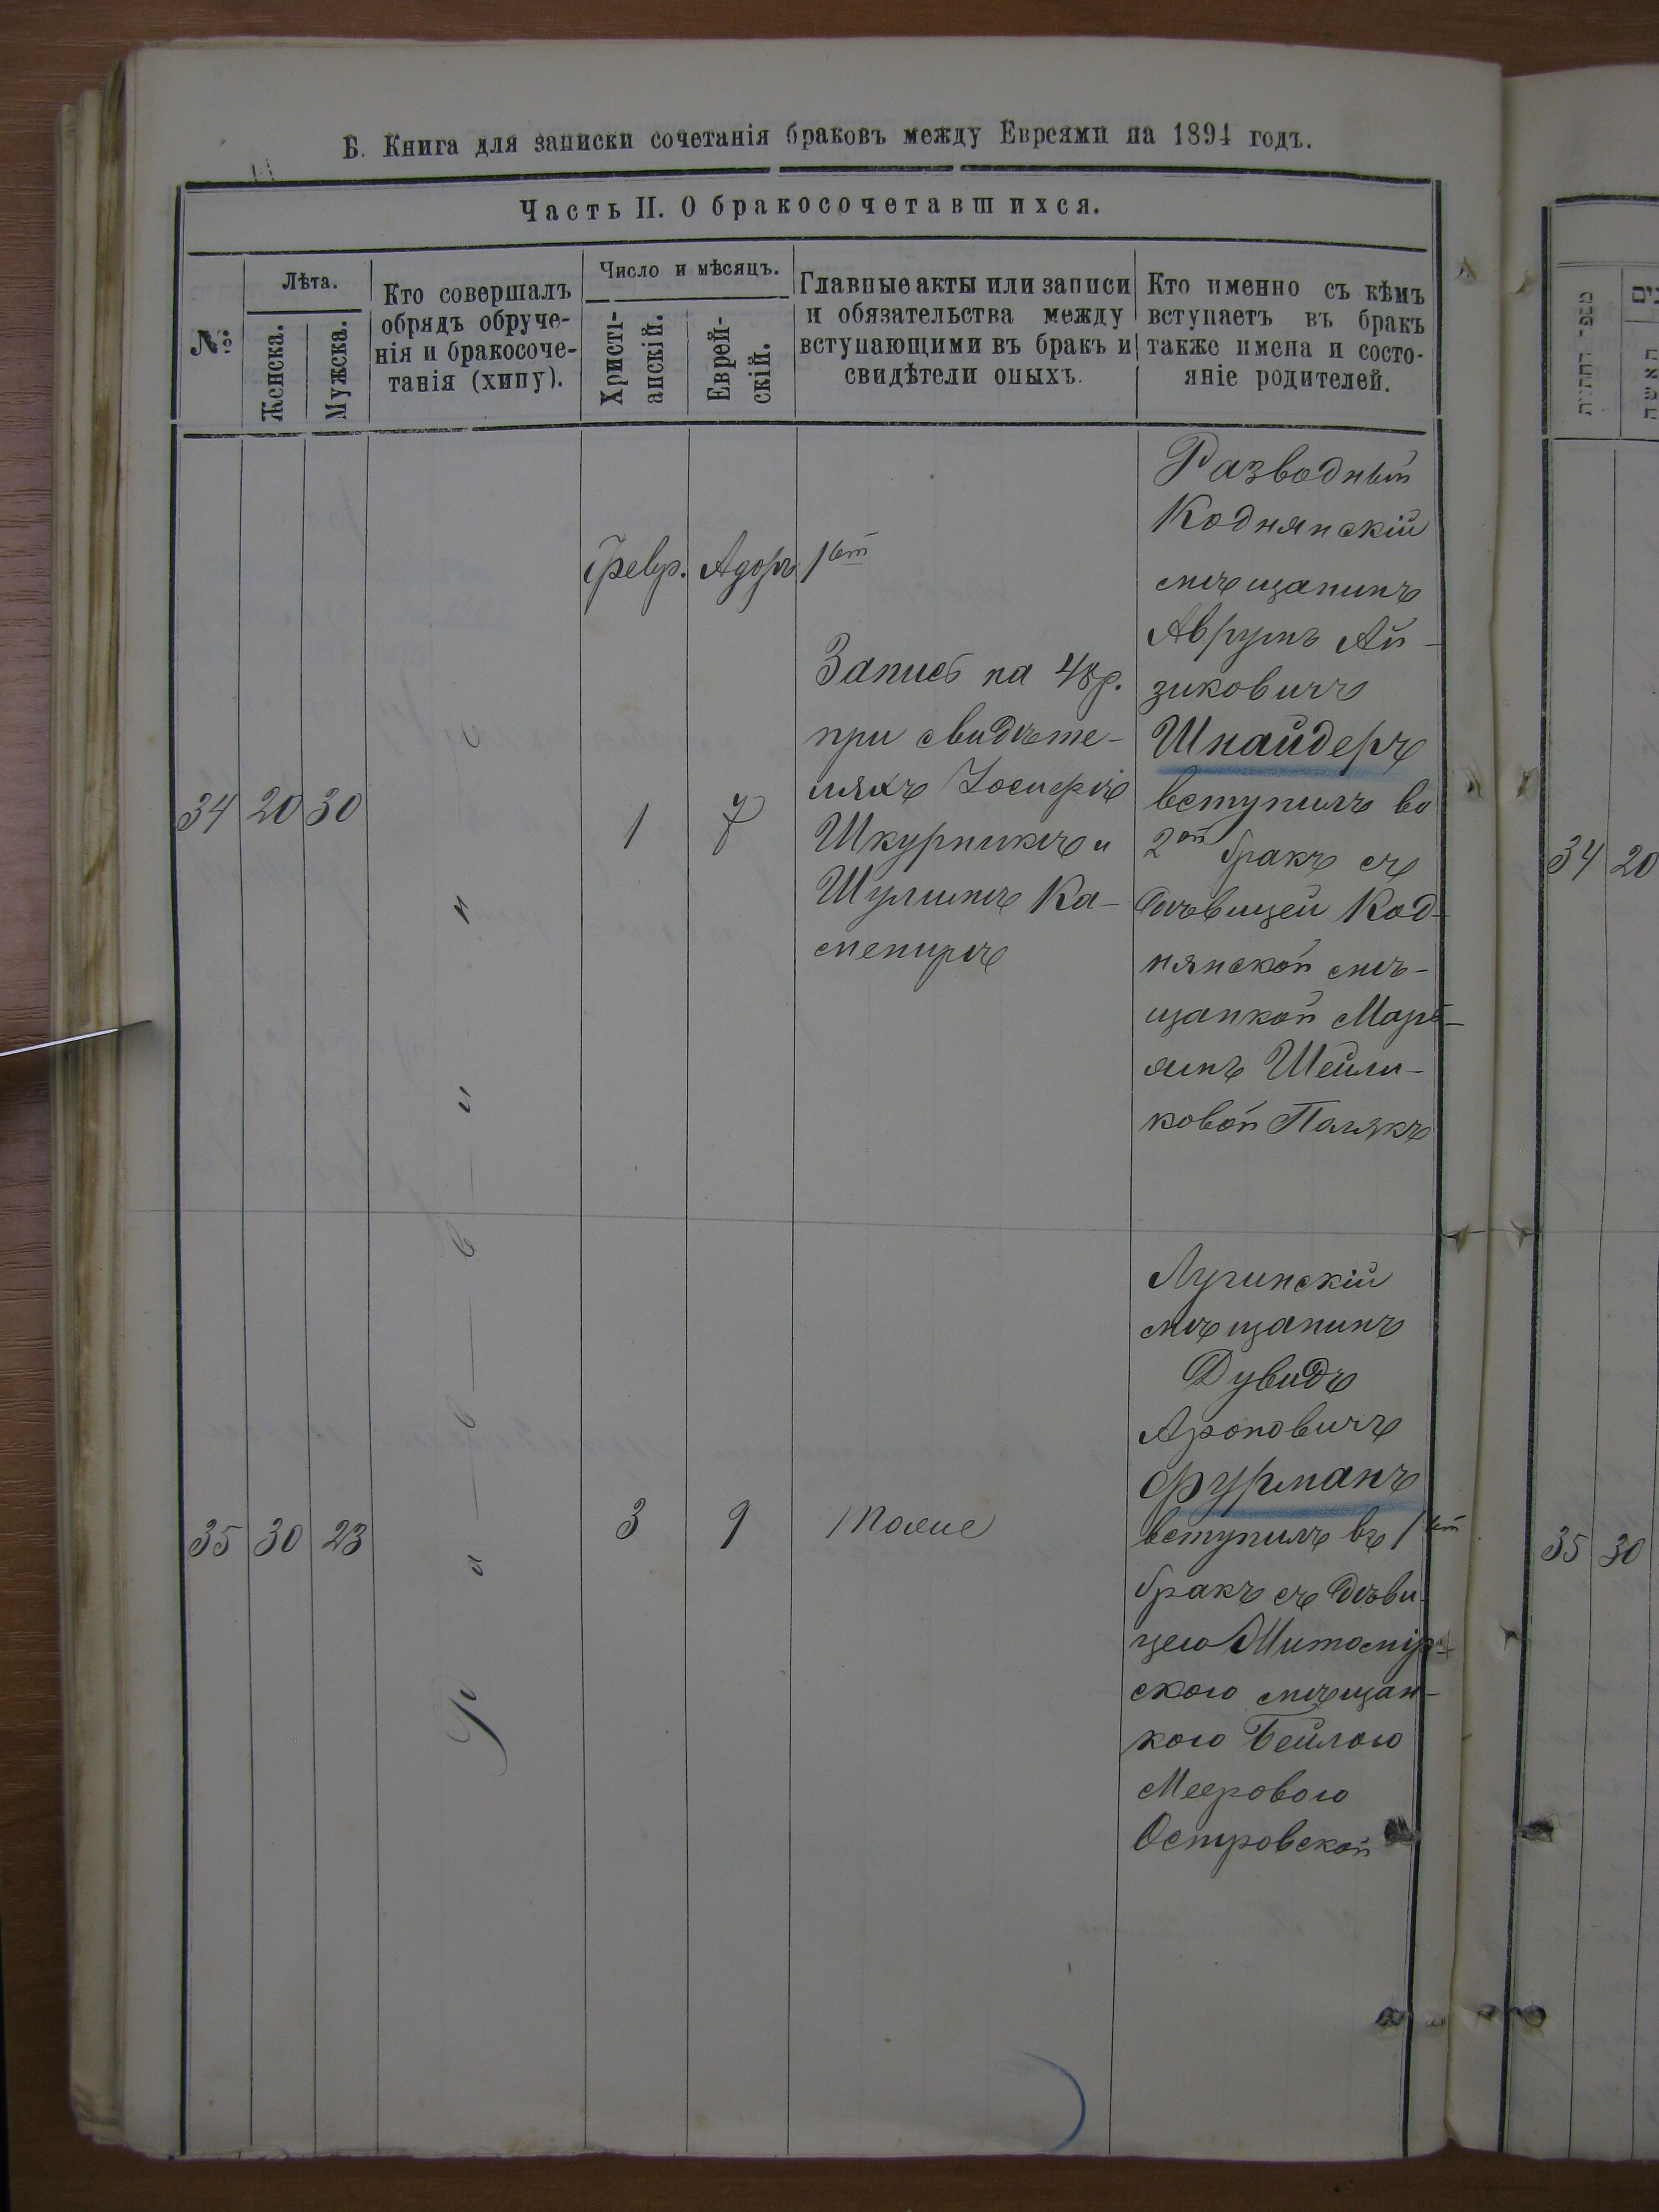 Б. Книга для записки сочетанія браковъ между Евреями на 1894 годъ.
Часть II. О бракосочетавшихся.
№
Лѣта.
Женска.
Мужска.
Кто совершалъ
обрядъ обруче-
нія и бракосоче-
танія (хипу).
Число и мѣсяцъ.
Христі-
анскій.
Еврей-
скій.
Главные акты или записи
и обязательства между
вступающими въ бракъ и
свидѣтели оныхъ.
Кто именно съ кѣмъ
вступаетъ въ бракъ
также имена и состо-
яніе родителей.
Февр. Адоръ 1ый
34 20 30
Р а в в и н ъ
1 7
Запись на 48 р.
при свидѣте-
ляхъ Іосифѣ
Шкурникѣ и
Шулимѣ Ка-
менирѣ
Разводный
Коднянскій
мѣщанинъ
Аврумъ Ай-
зиковичъ
Шнайдеръ
вступилъ во
2ой бракъ съ
дѣвицей Код-
нянской мѣ-
щанкой Марь-
ямъ Шейли-
ковой Полякъ
35 30 23
3 9
Тоже
Лугинскій
мѣщанинъ
Дувидъ
Ароновичъ
Фурманъ
вступилъ въ 1ый
бракъ съ дѣви-
цею Житомір-
скою мѣщан-
кою Бейлою
Мееровою
Островской
34 20
35 30